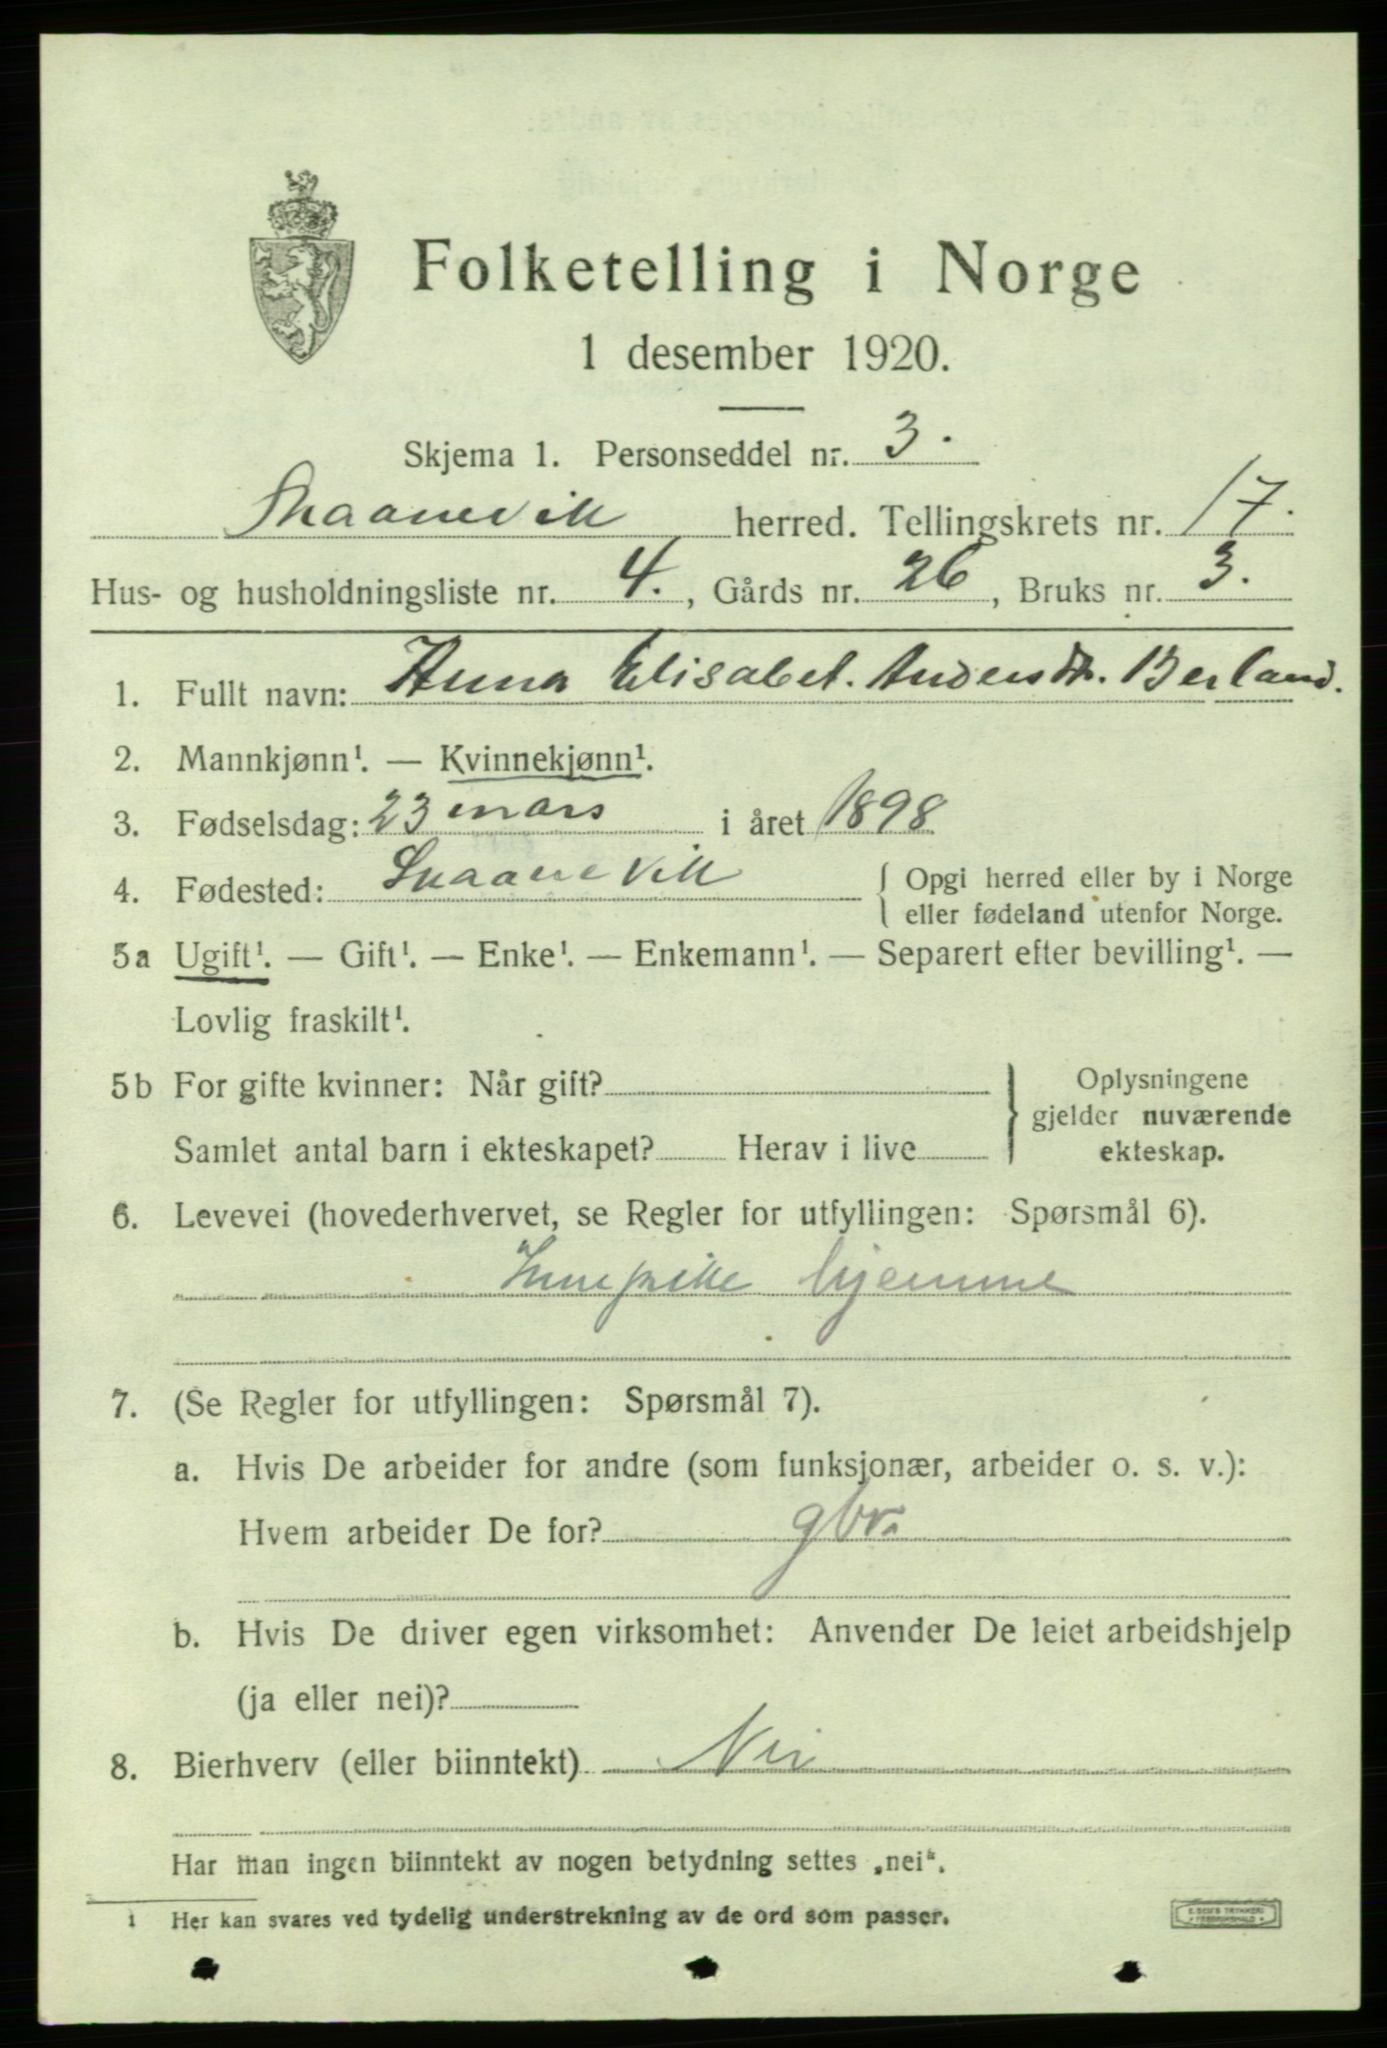 Folketelling i Norge
1 desember 1920.
Skjema 1. Personseddel nr. 3.
Skaanevik herred. Tellingskrets nr. 17.
Hus- og husholdningsliste nr. 4., Gårds nr. 26, Bruks nr. 3.
1. Fullt navn: Anna Elisabet. Andersdtr. Berland.
2. Mannkjønn¹. — Kvinnekjønn¹.
3. Fødselsdag: 23 mars i året 1898
4. Fødested: Skaanevik { Opgi herred eller by i Norge
eller fødeland utenfor Norge.
5a Ugift¹. — Gift¹. — Enke¹. — Enkemann¹. — Separert efter bevilling¹. —
Lovlig fraskilt¹.
5b For gifte kvinner: Når gift? } Oplysningene
gjelder nuværende
Samlet antal barn i ekteskapet? Herav i live
ekteskap.
6. Levevei (hovederhvervet, se Regler for utfyllingen: Spørsmål 6).
hjemme
7. (Se Regler for utfyllingen: Spørsmål 7).
a. Hvis De arbeider for andre (som funksjonær, arbeider o. s. v.):
Hvem arbeider De for? gbr.
b. Hvis De driver egen virksomhet: Anvender De leiet arbeidshjelp
(ja eller nei)?
8. Bierhverv (eller biinntekt) Nei
Har man ingen biinntekt av nogen betydning settes „nei“.
1 Her kan svares ved tydelig understrekning av de ord som passer.